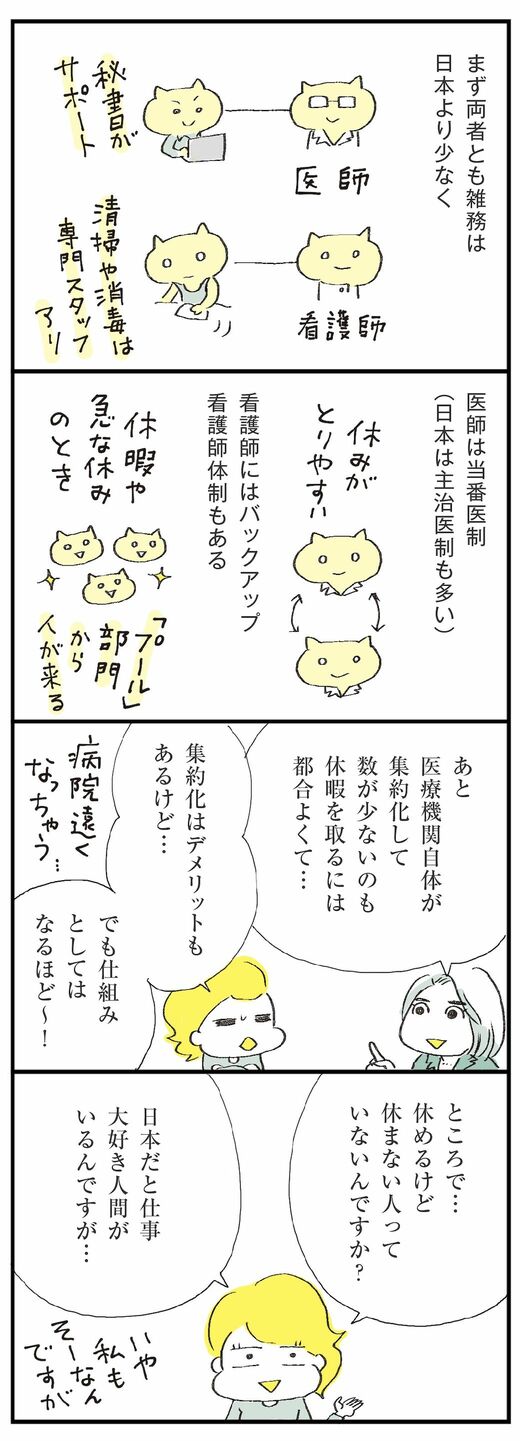 まず両者とも雑務は
日本より少なく
医師
秘書が
サポート
看護師
清掃や消毒は
専門スタッフ
アリ
医師は当番医制
(日本は主治医制も多い)
休みが
とりやすい
看護師にはバックアップ
看護師体制もある
休暇や
急な休み
のとき
「プール」
部門
から
人が来る
あと
医療機関自体が
集約化して
数が少ないのも
休暇を取るには
都合よくて…
集約化はデメリットも
あるけど…
病院遠く
なっちゃう…
でも仕組み
としては
なるほど〜!
ところで…
休めるけど
休まない人って
いないんですか?
日本だと仕事
大好き人間が
いるんですが…
いや
私も
そーなん
ですが